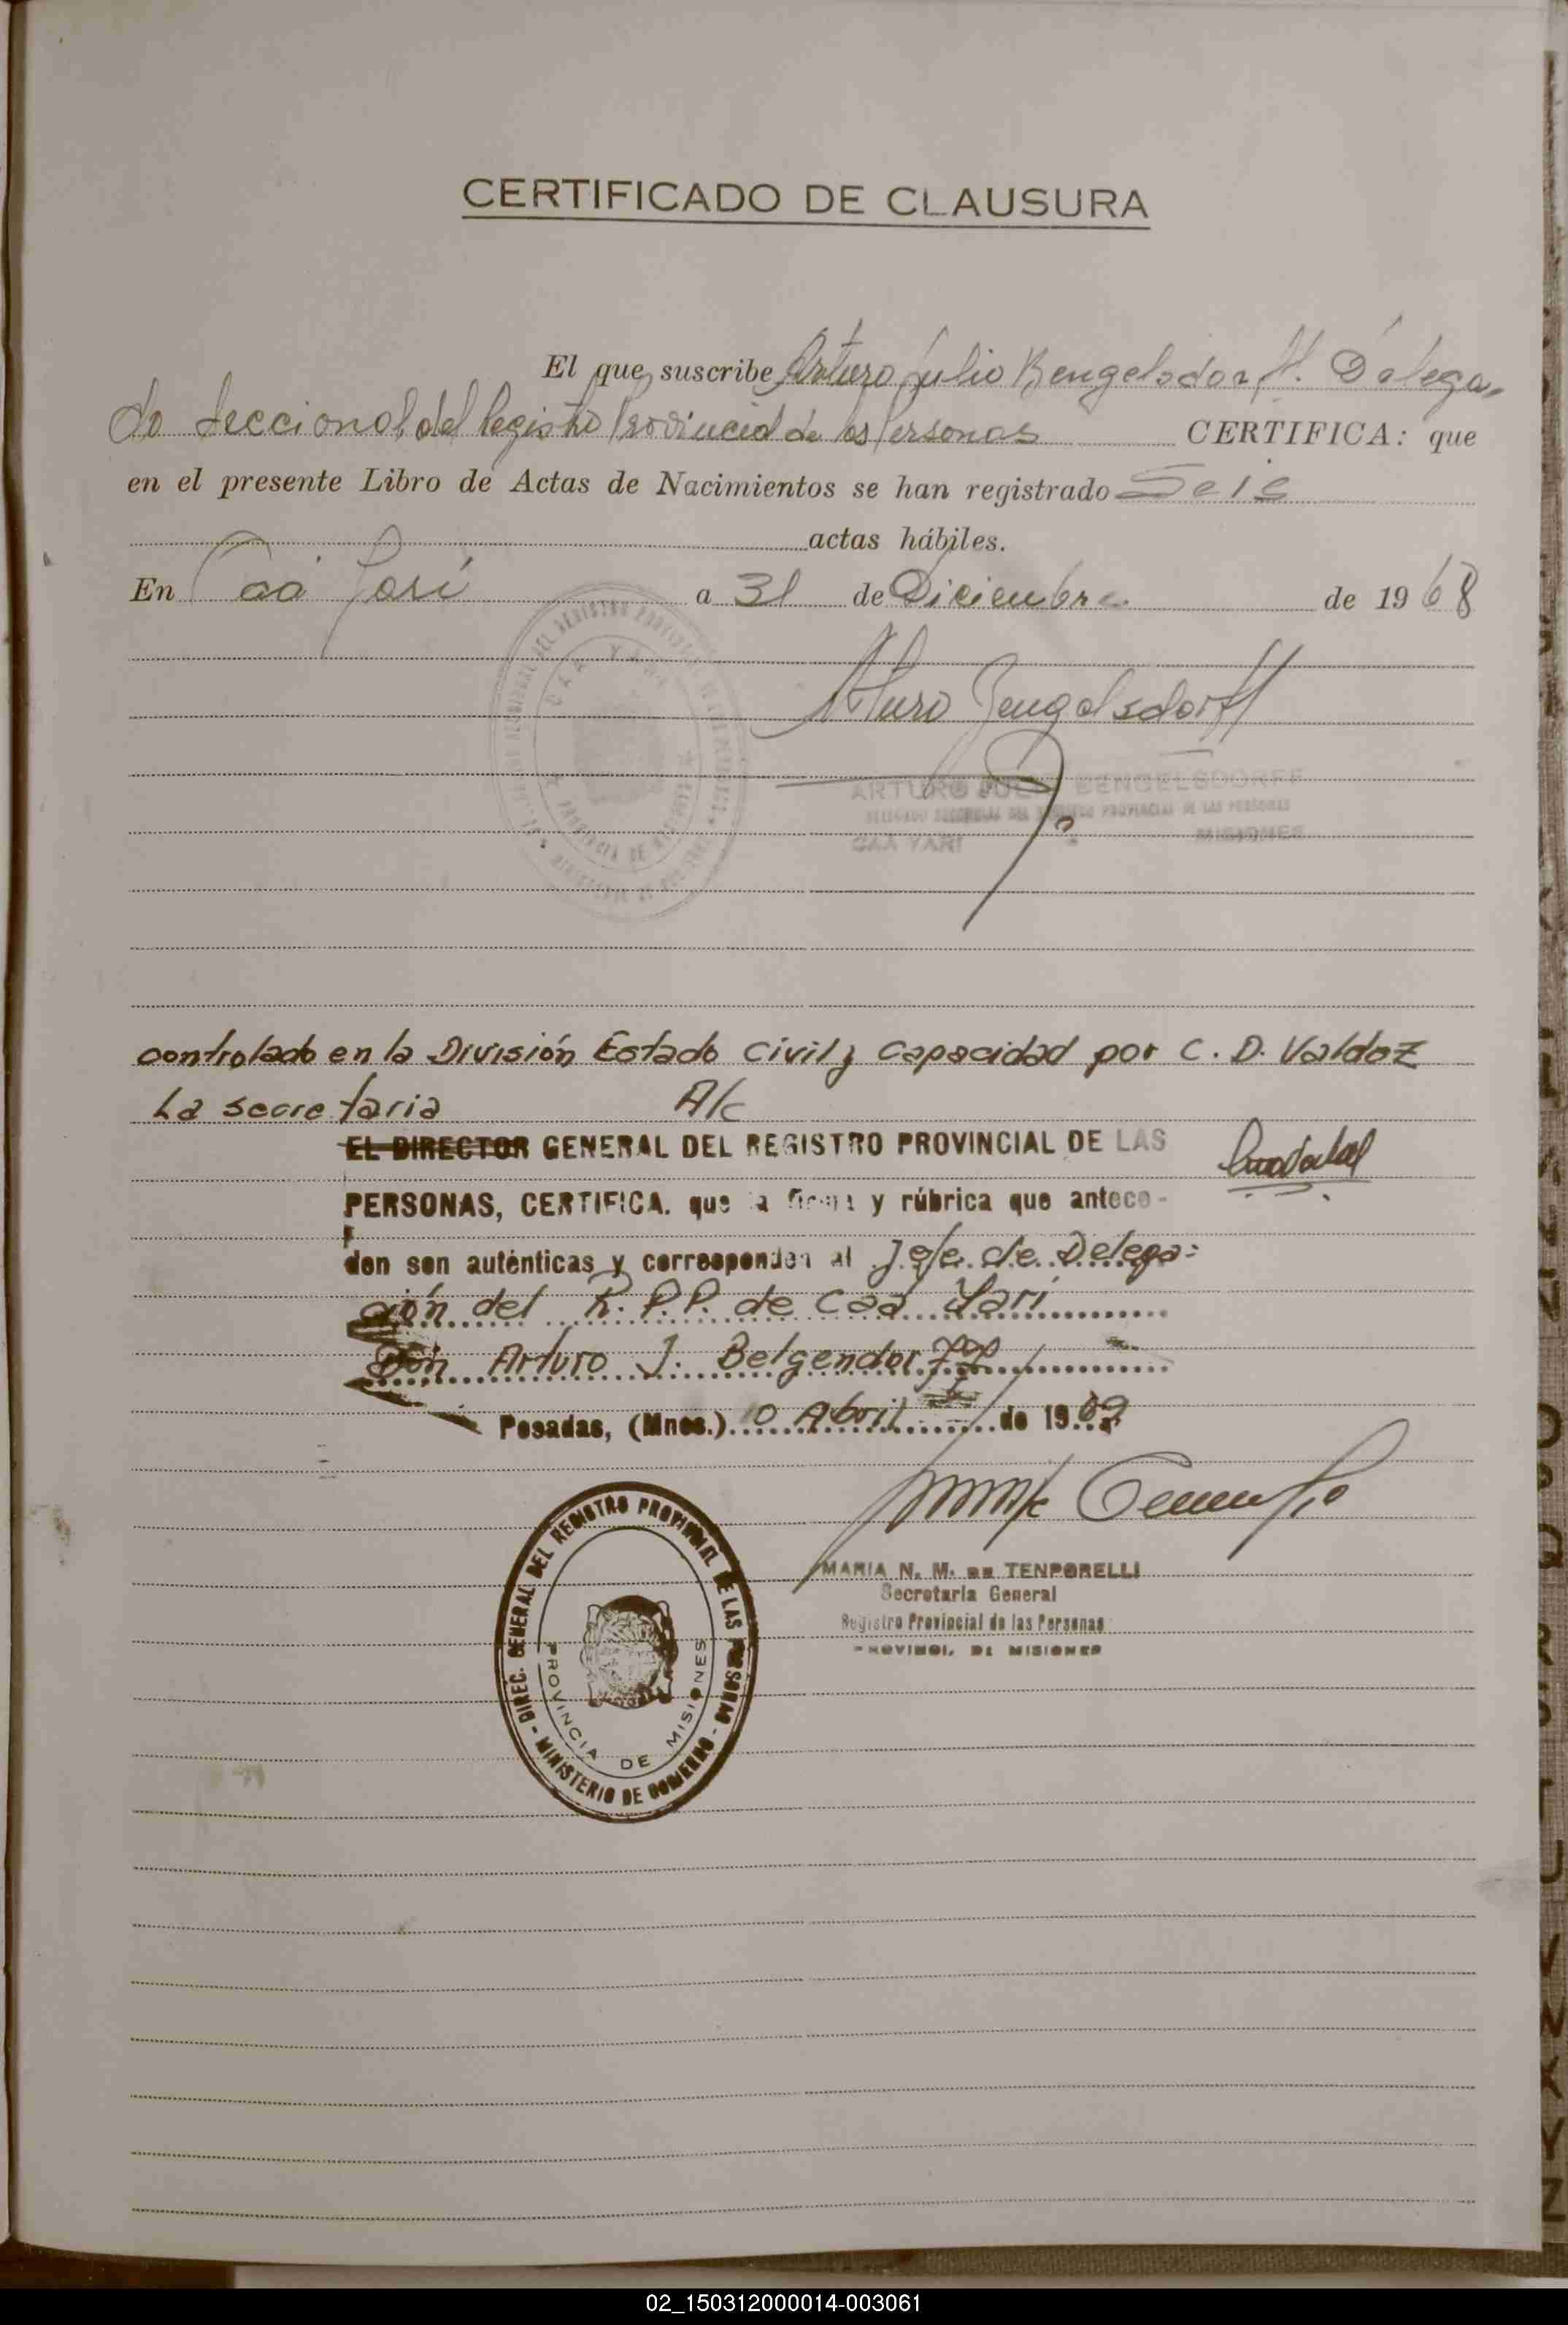 CERTIFICADO DE CLAUSURA
El que suscribe Arturo Julio Bengelsdorff. Delega-
do Seccional del Registro Provincial de las Personas CERTIFICA: que
en el presente Libro de Actas de Nacimientos se han registrado Seis
actas hábiles.
En Caá Yarí a 31 de Diciembre de 1968
Arturo Bengelsdorff
ARTURO JULIO BENGELSDORFF
DELEGADO SECCIONAL DEL REGISTRO PROVINCIAL DE LAS PERSONAS
CAA YARI MISIONES
controlado en la División Estado Civil y Capacidad por C. D. Valdez
La secretaria A/c
EL DIRECTOR GENERAL DEL REGISTRO PROVINCIAL DE LAS
PERSONAS, CERTIFICA. que la firma y rúbrica que antece-
den son auténticas y corresponden al Jefe de Delega-
ción del R. P. P. de Caá Yarí
Don Arturo J. Belgendorff
Posadas, (Mnes.) 10 Abril de 1969
MARIA N. M. DE TENPORELLI
Secretaria General
Registro Provincial de las Personas
PROVINCIA DE MISIONES
DIREC. GENERAL DEL REGISTRO PROVINCIAL DE LAS PERSONAS - MINISTERIO DE GOBIERNO -
PROVINCIA DE MISIONES
02_150312000014-003061